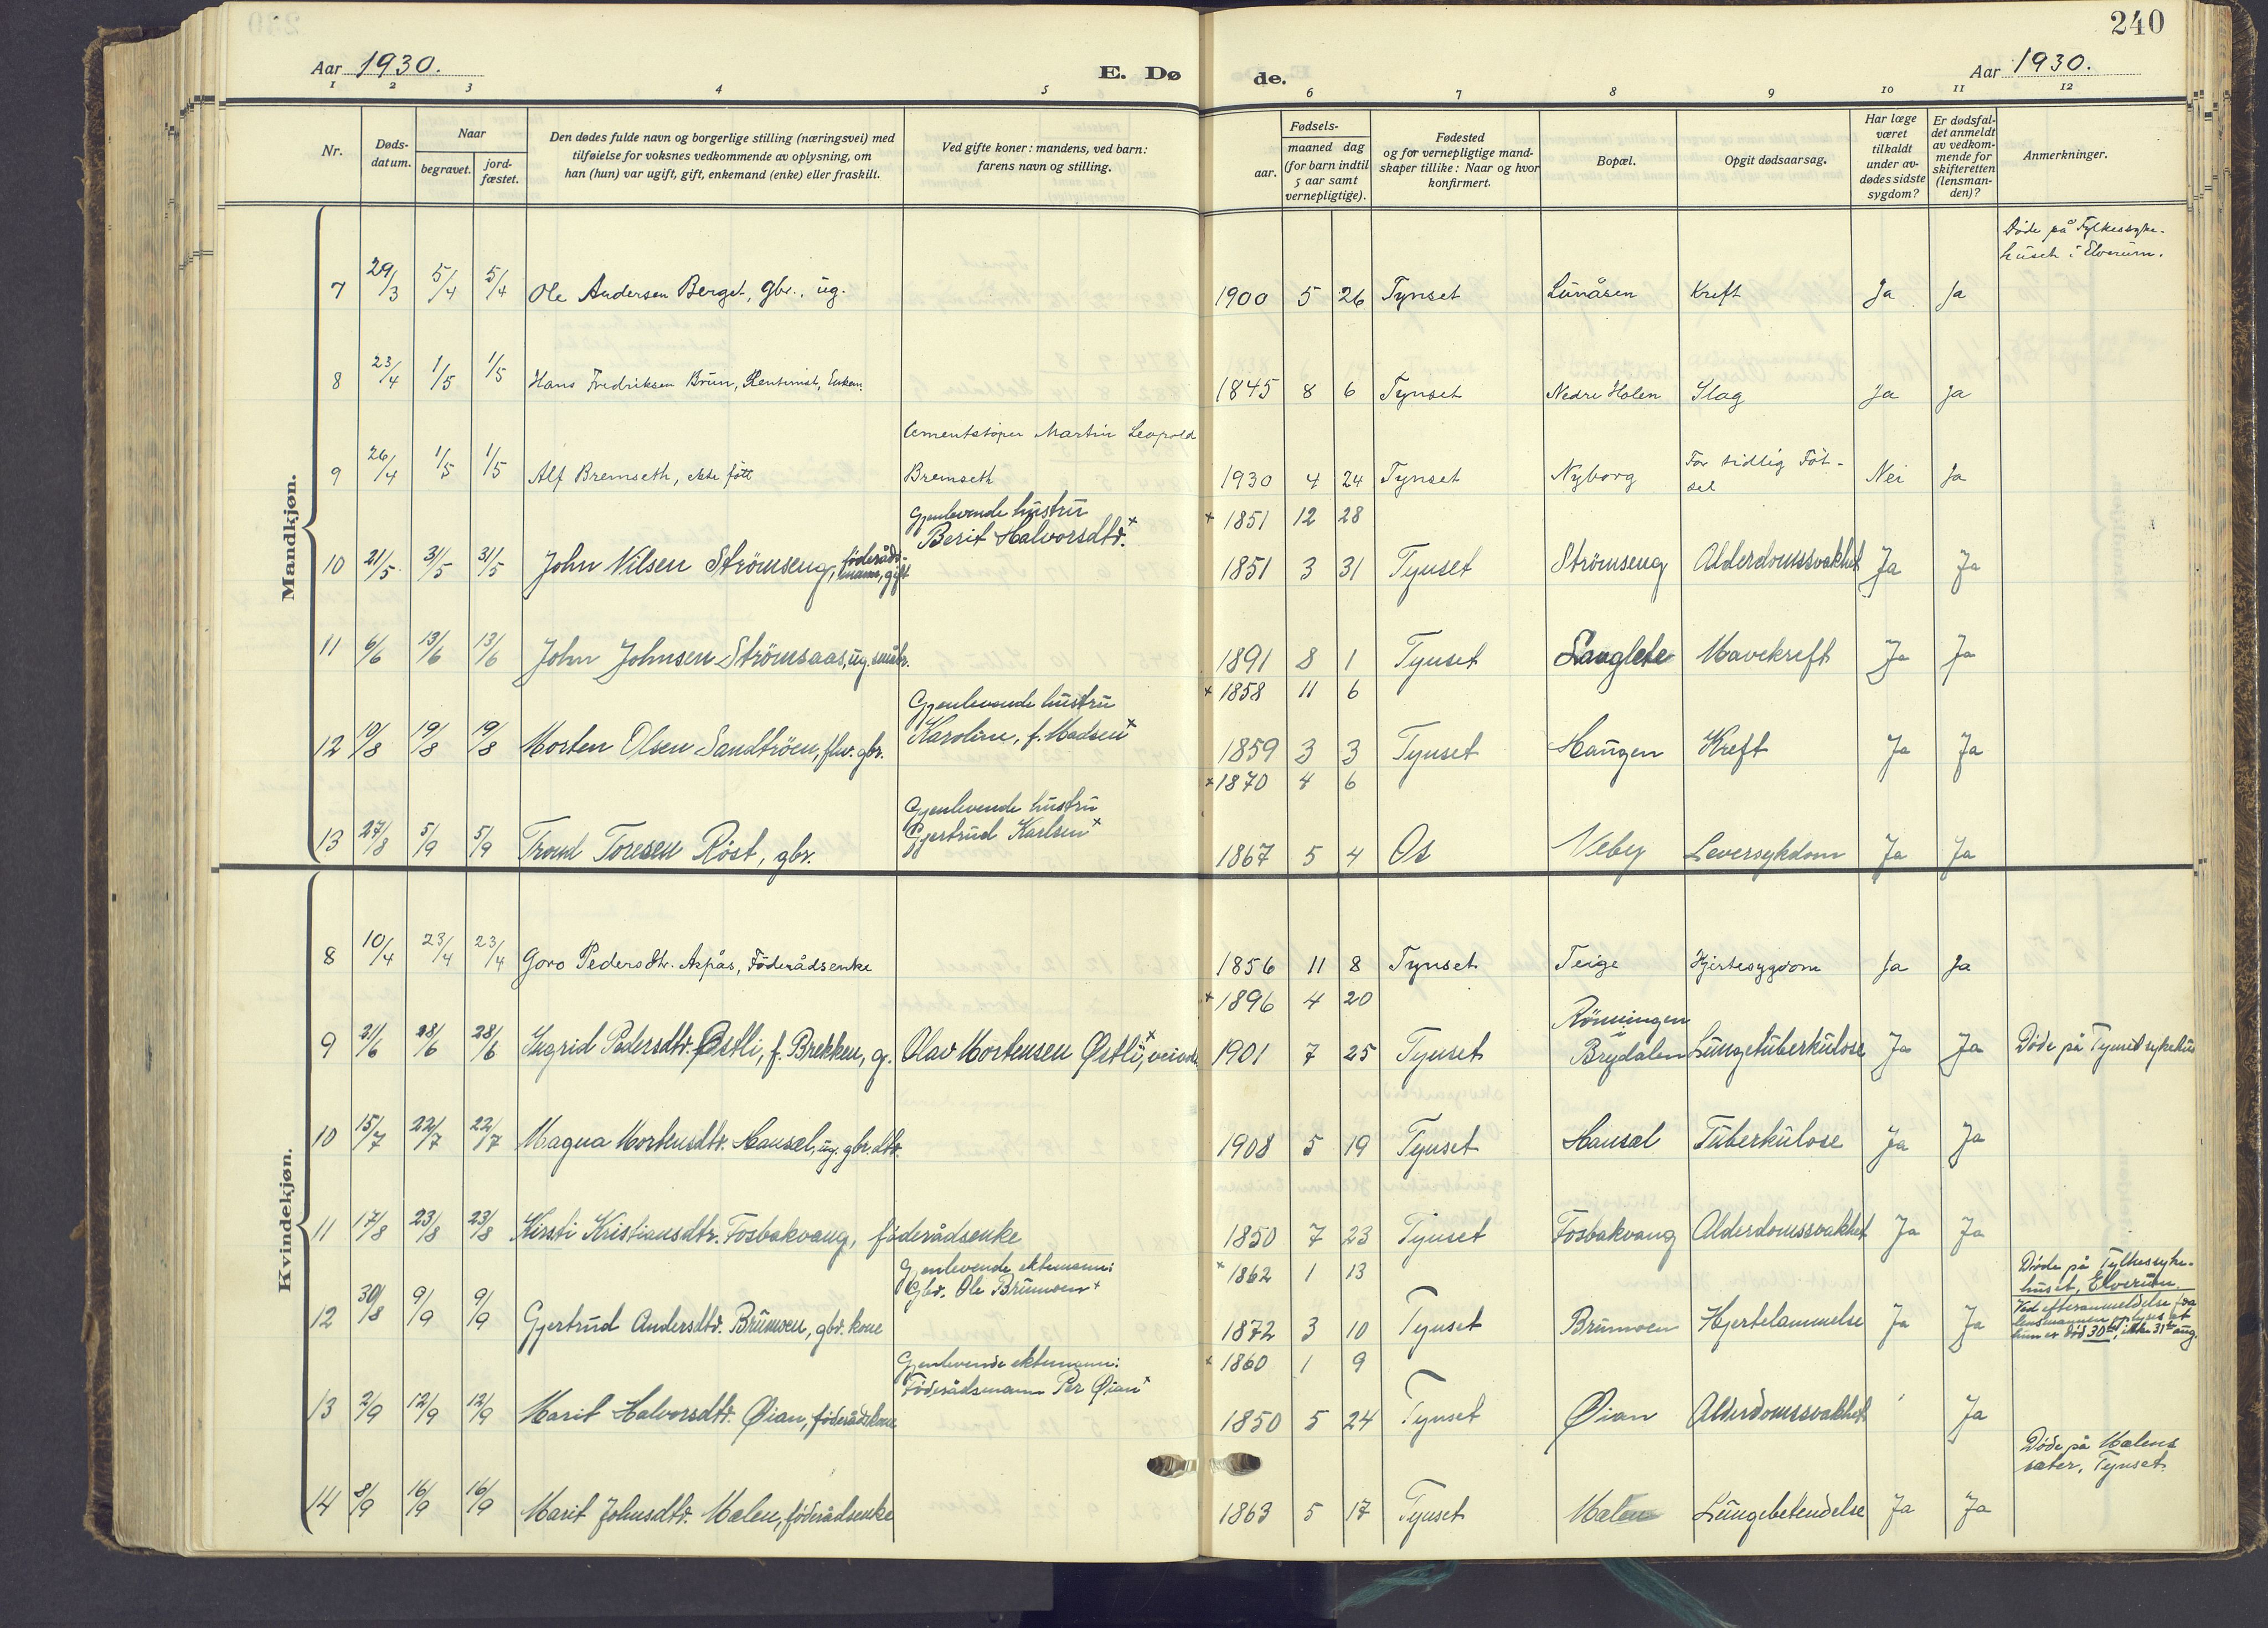 240
Aar 1930.
E. Dø
de.
Aar 1930.
1 2 3 4 5 6 7 8 9 10 11 12
Nr.
Døds-
datum.
Naar
begravet.
jord-
fæstet.
Den dødes fulde navn og borgerlige stilling (næringsvei) med
tilføielse for voksnes vedkommende av oplysning, om
han (hun) var ugift, gift, enkemand (enke) eller fraskilt.
Ved gifte koner: mandens, ved barn:
farens navn og stilling.
Fødsels-
aar.
maaned dag
(for barn indtil
5 aar samt
vernepligtige).
Fødested
og for vernepligtige mand-
skaper tillike: Naar og hvor
konfirmert.
Bopæl.
Opgit dødsaarsag.
Har læge
været
tilkaldt
under av-
dødes sidste
sygdom?
Er dødsfal-
det anmeldt
av vedkom-
mende for
skifteretten
(lensman-
den)?
Anmerkninger.
Mandkjøn.
Døde på Fylkessyke-
huset i Elverum.
7 29/3 5/4 5/4 Ole Andersen Berget, gbr., ug. 1900 5 26 Tynset Lunåsen Kreft Ja Ja
8 23/4 1/5 1/5 Hans Fredriksen Brun, Rentenist, Enkem. 1845 8 6 Tynset Nedre Holen Slag Ja Ja
Cementstøper Martin Leopold
9 26/4 1/5 1/5 Alf Bremseth, ekte født Bremseth 1930 4 24 Tynset Nyborg For tidlig Föt-
sel Nei Ja
Gjenlevende hustru
Berit Halvorsdtr.+ + 1851 12 28
10 21/5 31/5 31/5 John Nilsen Strömseng, föderåds-
mann, gift 1851 3 31 Tynset Strömseng Alderdomssvakhet Ja Ja
11 6/6 13/6 13/6 John Johnsen Strömsaas, ug. småbr. 1891 8 1 Tynset Langlete Mavekreft Ja Ja
Gjenlevende hustru + 1858 11 6
12 10/8 19/8 19/8 Morten Olsen Sandtröen, fhv. gbr. Karoline, f. Madsen+ 1859 3 3 Tynset Haugen Kreft Ja Ja
+ 1870 4 6
Gjenlevende hustru
Gjertrud Karlsen+
13 27/8 5/9 5/9 Trond Toresen Röst, gbr. 1867 5 4 Os Neby Leversykdom Ja Ja
Kvindekjøn.
8 10/4 23/4 23/4 Goro Pedersdtr. Aspås, Föderådsenke 1856 11 8 Tynset Teige Hjertesygdom Ja Ja
+ 1896 4 20
Rönningen
i
9 21/6 28/6 28/6 Ingrid Pedersdtr. Østli, f. Brekken, g. Olav Mortensen Østli+, 1901 7 25 Tynset Brydalen Lungetuberkulose Ja Ja Döde på Tynset sykehus
10 15/7 22/7 22/7 Magna Mortensdtr. Hansæl, ug. gbr. dtr. 1908 5 19 Tynset Hansæl Tuberkulose Ja Ja
11 17/8 23/8 23/8 Kirsti Kristiansdtr. Fosbakvang, föderådsenke 1850 7 23 Tynset Fosbakvang Alderdomssvakhet Ja Ja
Gjenlevende ektemann:
Gbr. Ole Brumoen+ + 1862 1 13
Döde på Fylkessyke-
huset, Elverum
12 30/8 9/9 9/9 Gjertrud Andersdtr. Brumoen, gbr. kone 1872 3 10 Tynset Brumoen Hjertelammelse Ja Ja Ved efteranmeldelse fra
lensmannen oplyses at
hun er död 30te, ikke 31te aug.
Gjenlevende ektemann:
Föderådsmann Per Øian+ + 1860 1 9
13 2/9 12/9 12/9 Marit Halvorsdtr. Øian, föderådskone 1850 5 24 Tynset Øian Alderdomssvakhet Ja
Döde på Mælens
sæter, Tynset.
14 8/9 16/9 16/9 Marit Johnsdtr. Mælen, föderådsenke 1863 5 17 Tynset Mælen Lungebetendelse Ja Ja